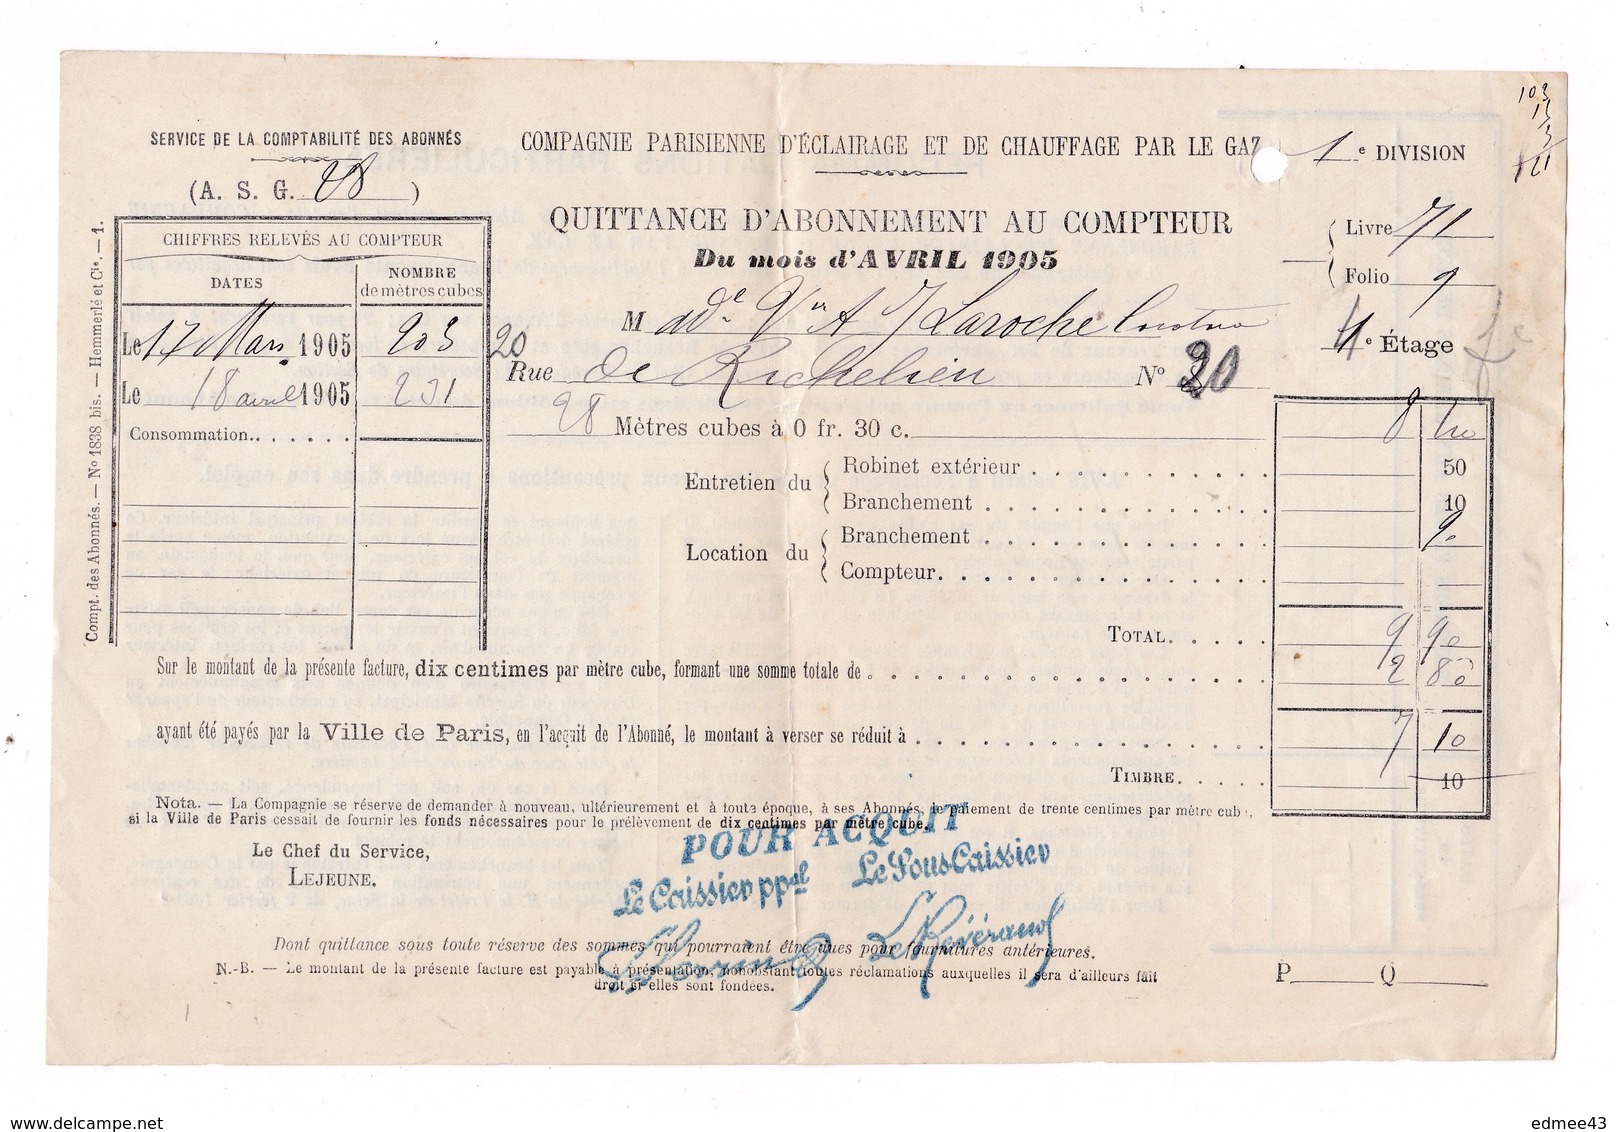 SERVICE DE LA COMPTABILITÉ DES ABONNÉS
(A. S. G. 28 )
COMPAGNIE PARISIENNE D'ÉCLAIRAGE ET DE CHAUFFAGE PAR LE GAZ
1e DIVISION
QUITTANCE D'ABONNEMENT AU COMPTEUR
Du mois d'AVRIL 1905
Livre 71
Folio 9
CHIFFRES RELEVÉS AU COMPTEUR
DATES
NOMBRE
de mètres cubes
Le 17 Mars 1905 203
Le 18 avril 1905 231
Consommation
Compt. des Abonnés. — No 1838 bis. — Hemmerlé et Cie. — 1.
M ade Vve A Laroche
1e Étage
20
Rue de Richelieu No 20
28 Mètres cubes à 0 fr. 30 c. 8 40
Entretien du
Robinet extérieur 50
Branchement 10
Location du
Branchement 90
Compteur.
TOTAL. 9 90
Sur le montant de la présente facture, dix centimes par mètre cube, formant une somme totale de 2 80
ayant été payés par la Ville de Paris, en l'acquit de l'Abonné, le montant à verser se réduit à 7 10
TIMBRE. 10
Nota. — La Compagnie se réserve de demander à nouveau, ultérieurement et à toute époque, à ses Abonnés, le paiement de trente centimes par mètre cube,
si la Ville de Paris cessait de fournir les fonds nécessaires pour le prélèvement de dix centimes par mètre cube.
POUR ACQUIT
Le Chef du Service,
LEJEUNE.
Le Caissier ppal
Le Sous Caissier
Dont quittance sous toute réserve des sommes qui pourraient être dues pour fournitures antérieures.
N.-B. — Le montant de la présente facture est payable à présentation, nonobstant toutes réclamations auxquelles il sera d'ailleurs fait
droit si elles sont fondées.
P Q
edmee43